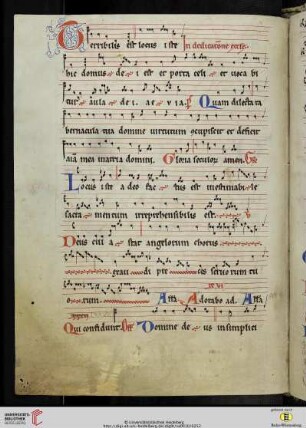 Terribilis est locus iste In dedicatione eccle.
hic domus de i est et porta celi et uoca bi
tur aula de i. ae v i a. P Quam dilecta ta
bernacula tua domine uirtutum ccupiscit et deficit
aia mea in atria domini. Gloria seculor amen. Gr
Locus iste a deo fac tus est inestimabi le
sacra mentum irreprehensibilis est.
Deus cui a stat angelorum chorus
exau di pre ces seruo rum tu
o rum. Alla Adorabo ad. Alla
Qui confidunt. Off Domine de us in simplici
UNIVERSITÄTS-BIBLIOTHEK HEIDELBERG
© Universitätsbibliothek Heidelberg
Baden-Württemberg